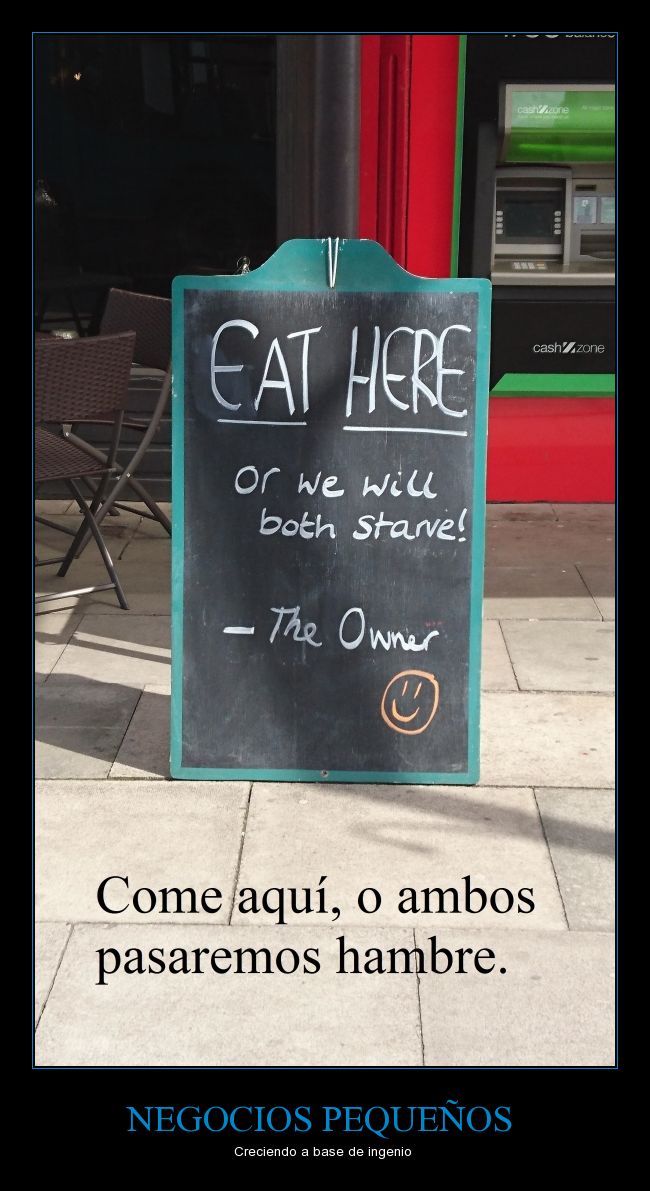 balance
cashzone
cashzone
EAT HERE
Or we will
both starve!
- The Owner
Come aquí, o ambos
pasaremos hambre.
NEGOCIOS PEQUEÑOS
Creciendo a base de ingenio